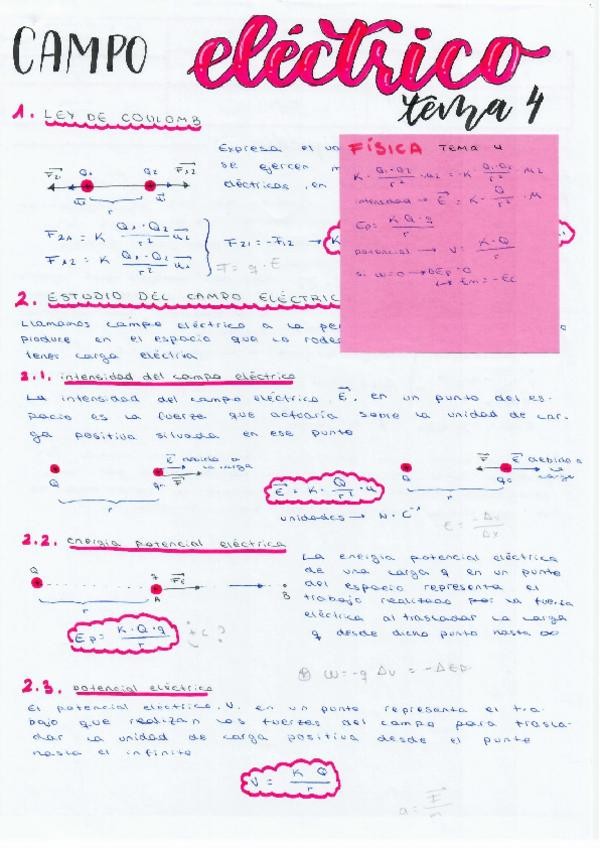 CAMPO eléctrico
tema 4
1. LEY DE COULOMB
Expresa el
se ejercen
eléctricas, en
FÍSICA TEMA 4
K · Q1·Q2/r² · u2 = -K · Q1·Q2/r² · u2
intensidad → E = K · Q/r² · u
Ep = K Q·q/r
potencial → V = K·Q/r
si W=0 → ΔEp=0
F21 Q1 Q2 F12
F21 = K Q1·Q2/r² u2
F12 = K Q1·Q2/r² u2
F21 = -F12 →
F = q·E
2. ESTUDIO DEL CAMPO ELÉCTRIC
Llamamos campo eléctrico a la per
produce en el espacio que la rodea
tener carga eléctrica
2.1. intensidad del campo eléctrico
La intensidad del campo eléctrico, E, en un punto del es-
pacio es la fuerza que actuaría sobre la unidad de car-
ga positiva situada en ese punto
E debido a la carga
Q r q0 F
E = K · Q/r² · u
F E debido a la carga
Q r q0
unidades → N·C⁻¹
E = -Δv/Δx
2.2. energía potencial eléctrica
Q r q A Fe B
La energía potencial eléctrica
de una carga q en un punto
del espacio representa el
trabajo realizado por la fuerza
eléctrica al trasladar la carga
q desde dicho punto hasta ∞
Ep = K·Q·q/r +c?
W = -q Δv = -ΔEp
2.3. potencial eléctrico
El potencial eléctrico, V, en un punto representa el tra-
bajo que realizan las fuerzas del campo para trasla-
dar la unidad de carga positiva desde el punto
hasta el infinito
V = K Q/r
a = F/m